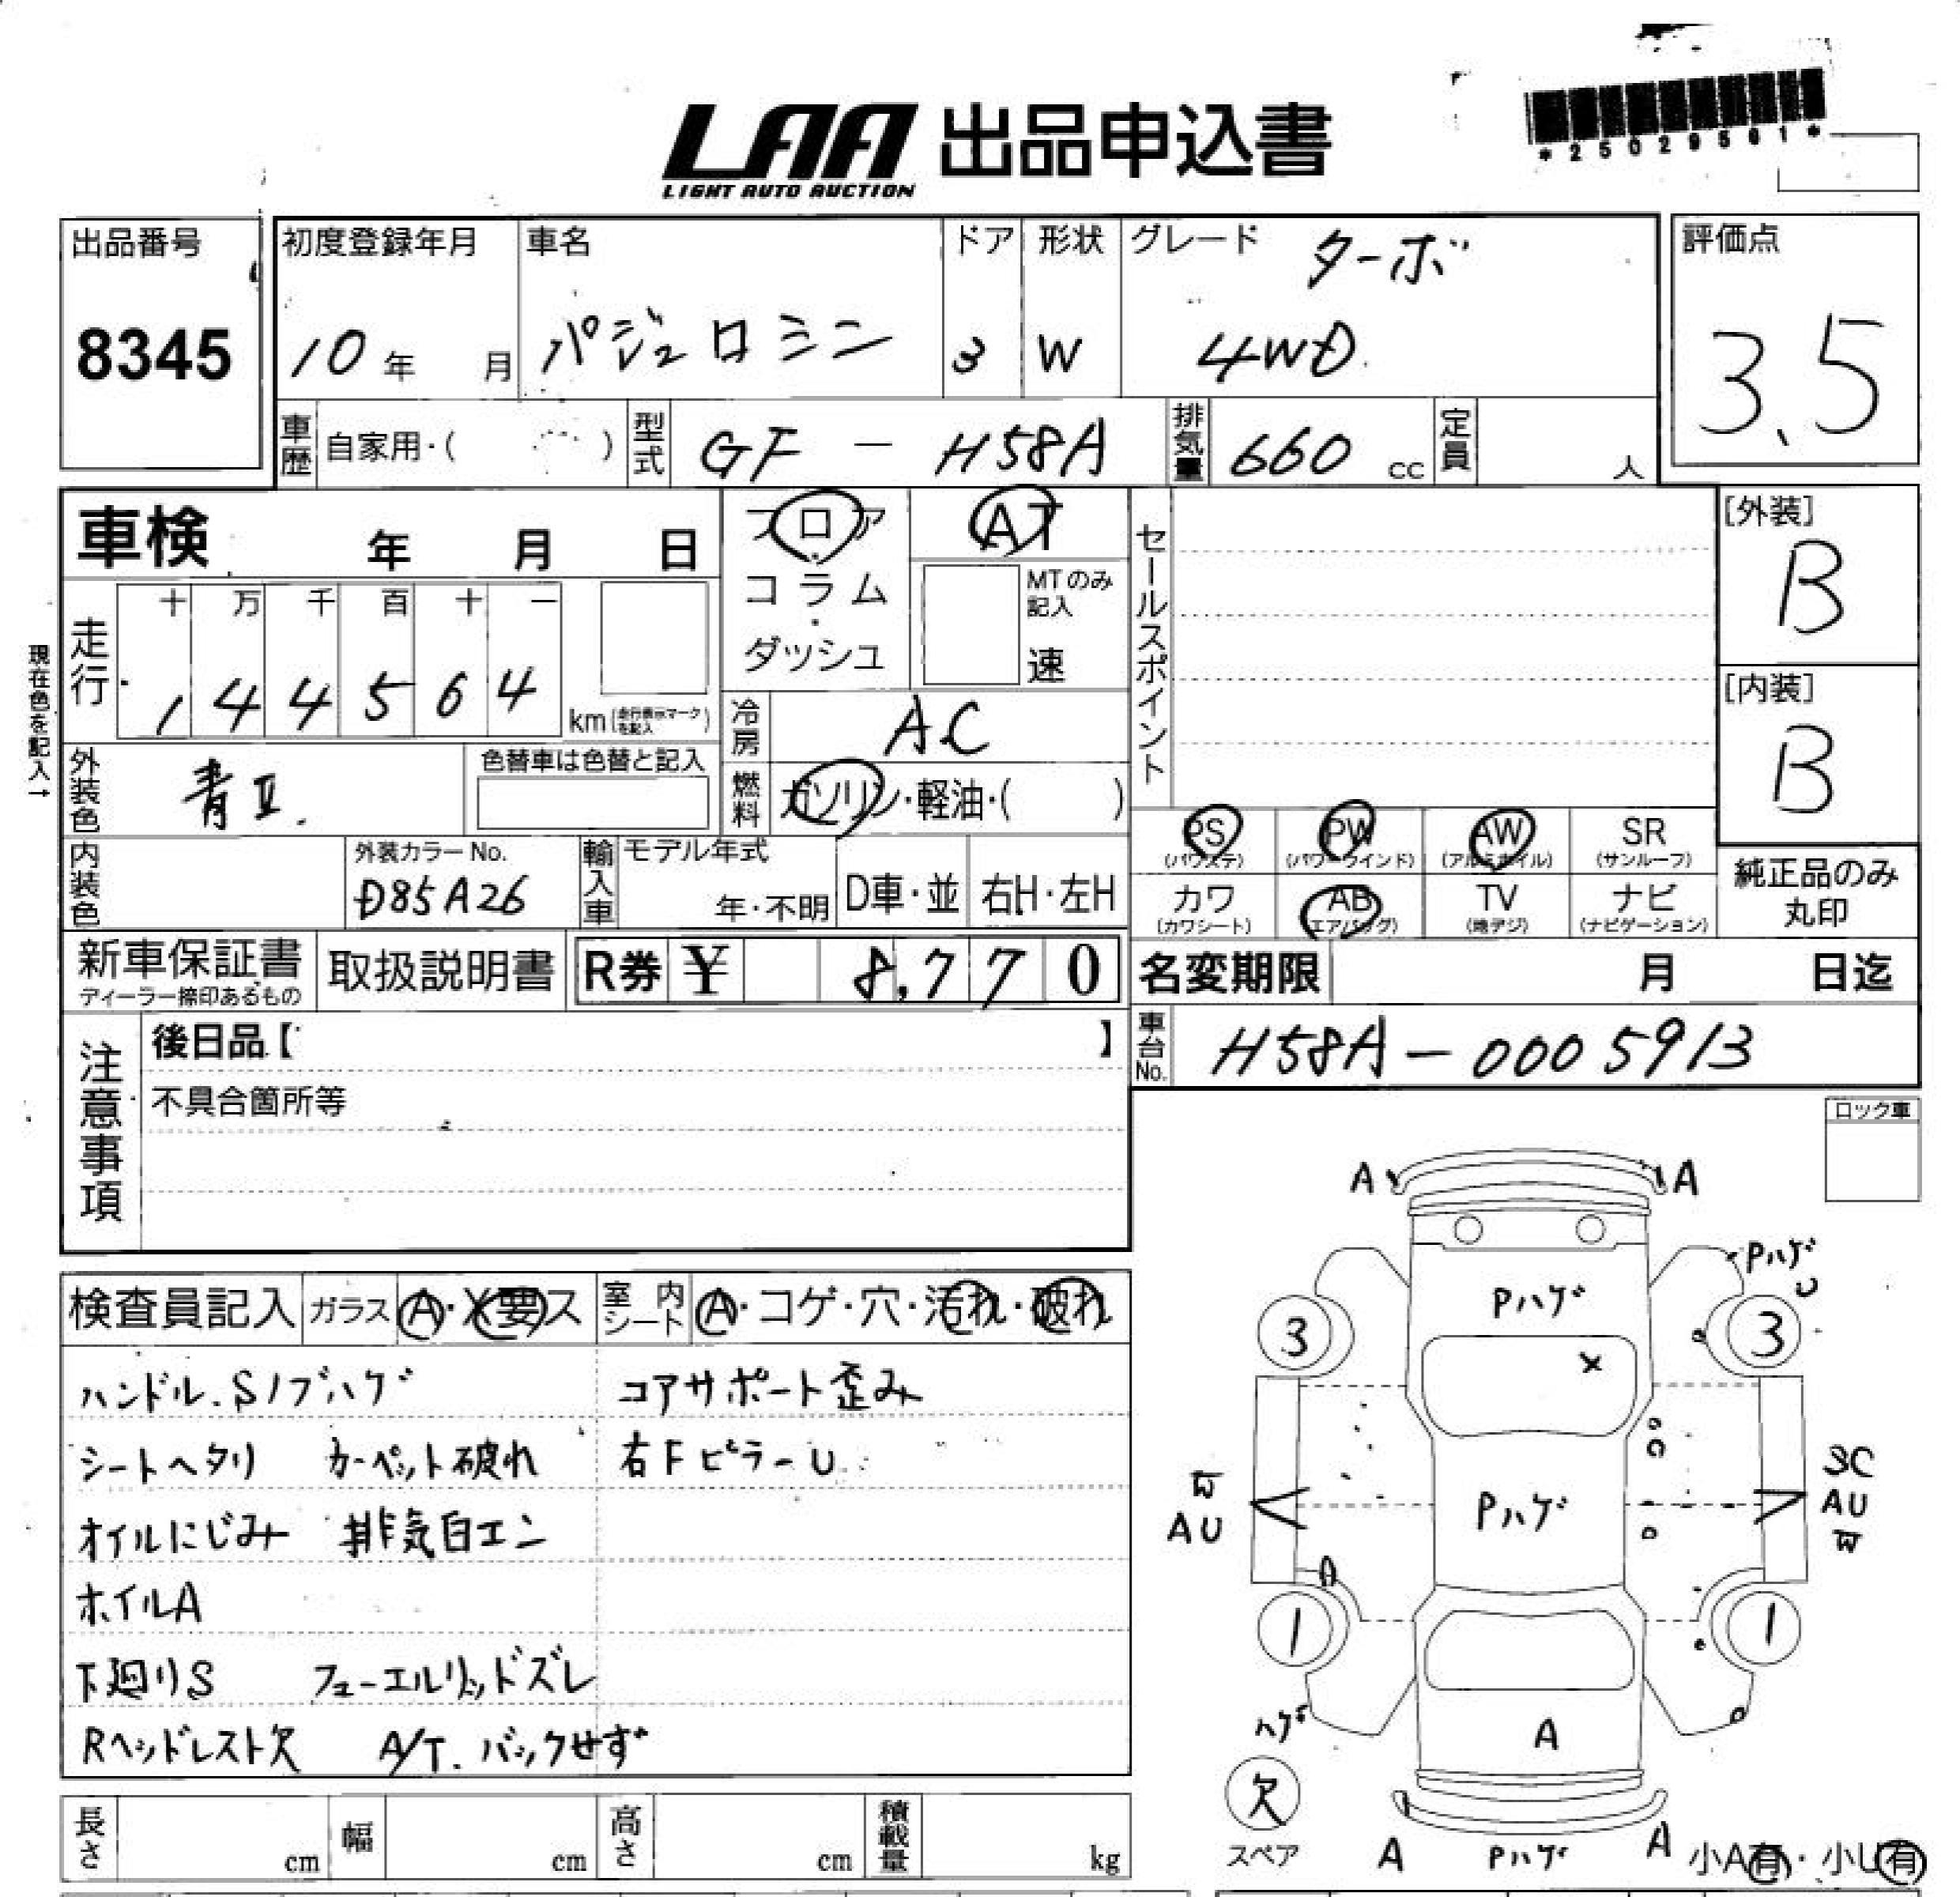 *25029561*
LAA 出品申込書
LIGHT AUTO AUCTION
出品番号
8345
初度登録年月
10年 月
車名
パジェロミニ
ドア
3
形状
W
グレード
ターボ
4WD
評価点
3.5
車歴 自家用・( )
型式 GF - H58A
排気量 660 cc
定員 人
車検 年 月 日
フロア・コラム・ダッシュ
AT
MTのみ記入
速
セールスポイント
[外装]
B
[内装]
B
現在色を記入→
走行
十 万 千 百 十 一
1 4 4 5 6 4
km (走行表示マークを記入)
冷房 AC
外装色 青II.
色替車は色替と記入
燃料 ガソリン・軽油・( )
内装色
外装カラーNo.
D85A26
輸入車 モデル年式
年・不明
D車・並
右H・左H
PS
(パワステ)
PW
(パワーウインド)
AW
(アルミホイル)
SR
(サンルーフ)
カワ
(カワシート)
AB
(エアバッグ)
TV
(地デジ)
ナビ
(ナビゲーション)
純正品のみ
丸印
新車保証書
ディーラー捺印あるもの
取扱説明書
R券 ¥ 8,770
名変期限 月 日迄
車台No. H58A-0005913
注意事項
後日品【 】
不具合箇所等
ロック車
検査員記入 ガラス A・X要ス
室内シート A・コゲ・穴・汚れ・破れ
ハンドル.Sノブハゲ
コアサポート歪み
シートヘタリ カーペット破れ
右FピラーU
オイルにじみ 排気白エン
ホイルA
下廻りS フューエルリッドズレ
Rヘッドレスト欠 A/T.バックせず
A A
Pハゲ
U
Pハゲ
3 3
X
AU
Pハゲ
SC
AU
A
1 1
ハゲ
A
欠
スペア
A Pハゲ A
小A有・小U有
長さ cm
幅 cm
高さ cm
積載量 kg